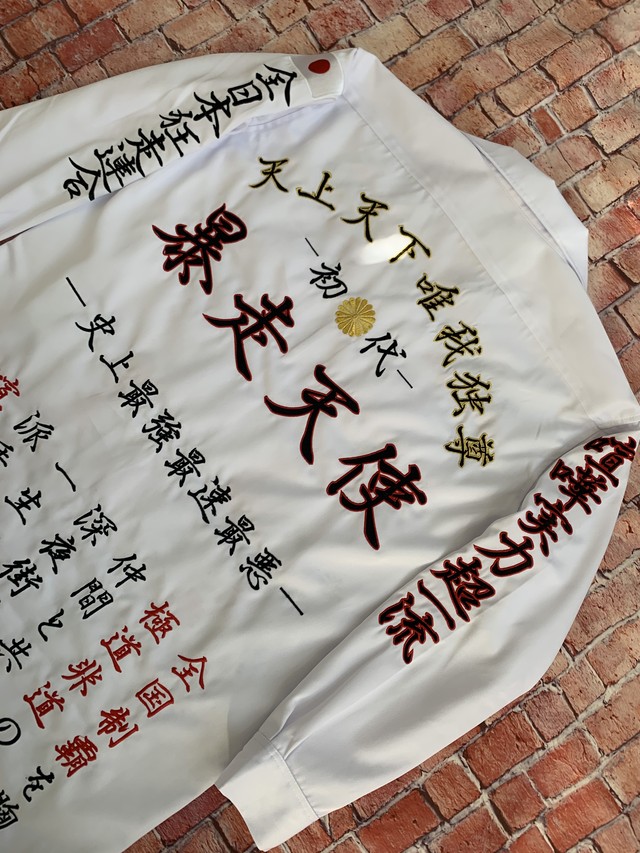 全日本狂走連合
天上天下唯我独尊
−初代−
暴走天使
−史上最強最速最悪−
喧嘩実力超一流
全国制覇を胸
極道非道の
仲間と共
深夜街
一
派